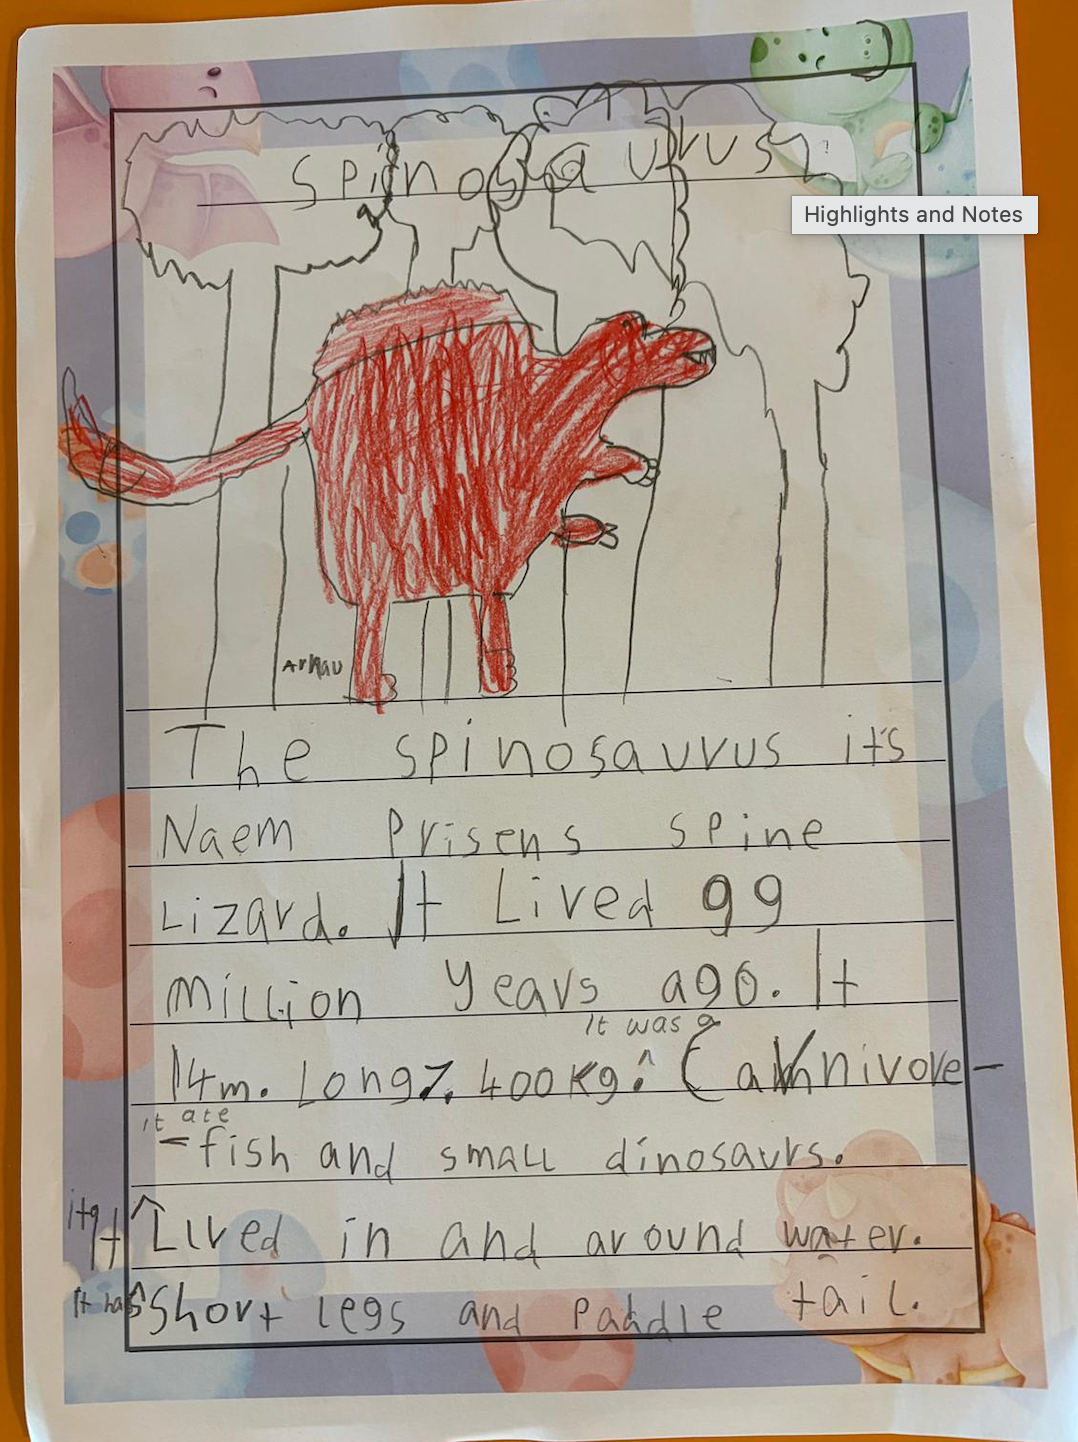 spinosaurus
Highlights and Notes
Arnau
The spinosaurus it's
Naem Prisens spine
Lizard. It Lived 99
million years ago. It
It was a
14m. Long 7.400kg. Carnivore-
it ate
-fish and small dinosaurs.
It Lived in and around water.
It has short legs and paddle tail.